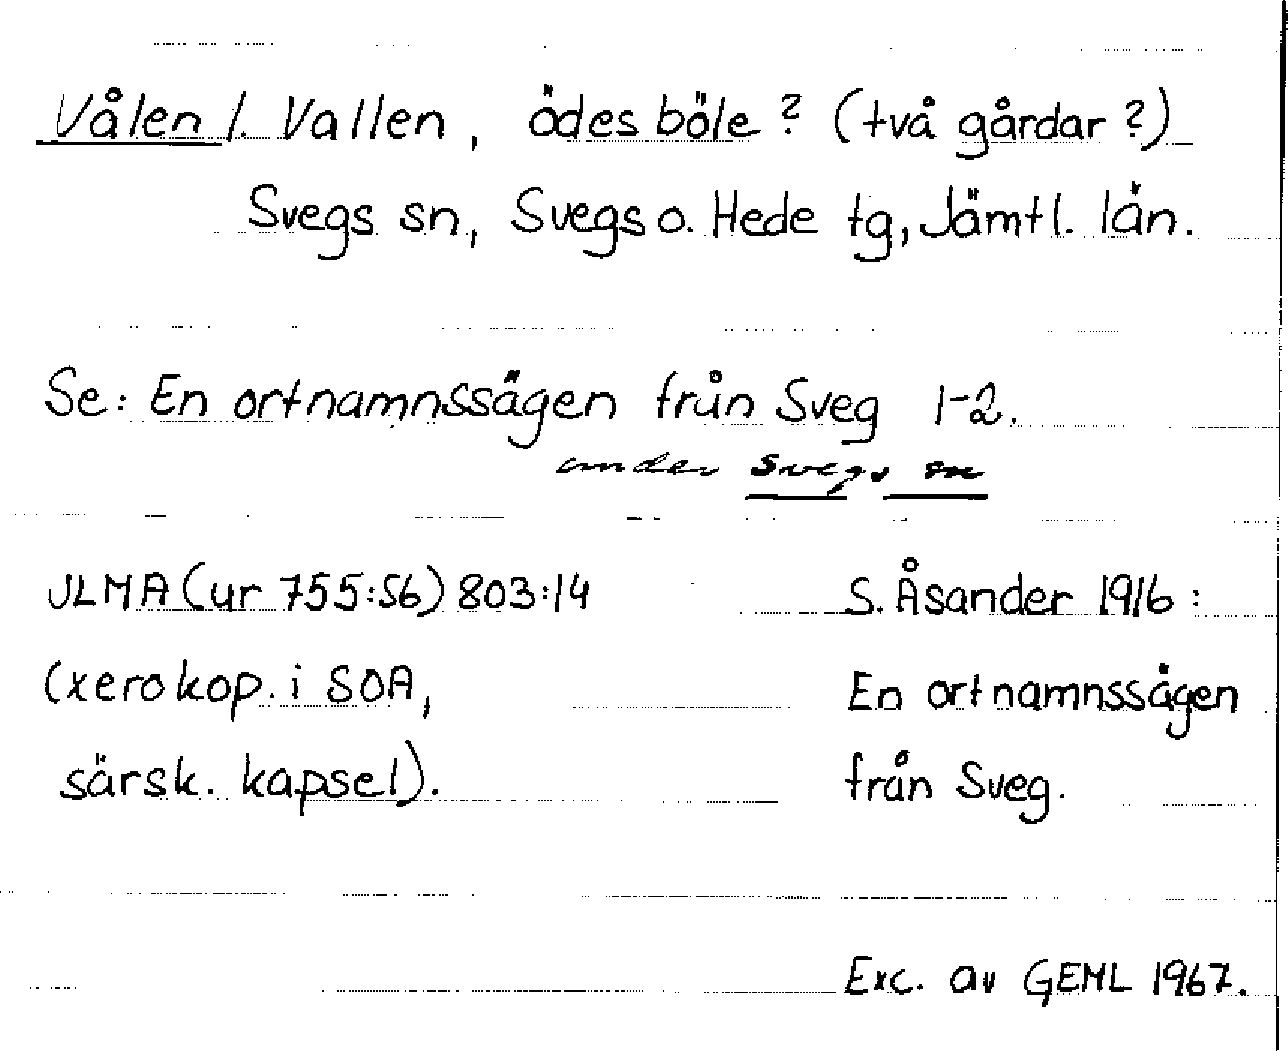 Vålen l. Vallen, ödesböle? (två gårdar?)
Svegs sn, Svegs o. Hede tg, Jämtl. län.
Se: En ortnamnssägen från Sveg 1-2.
under Svegs sn
ULMA (ur 755:56) 803:14 S. Åsander 1916:
(xerokop. i SOA, En ortnamnssägen
särsk. kapsel). från Sveg.
Exc. av GEML 1967.